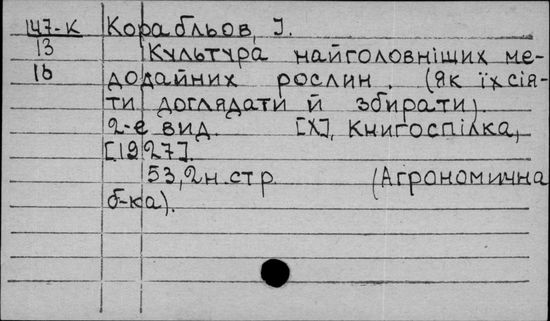 147-К Корабльов, І.
13 Культура найголовніщих ме-
16 додайних рослин. (Як їх сія-
ти доглядати й збирати).
2-е вид. [Х], Книгоспілка,
[1927].
53,2н.стр (Агрономична
б-ка).